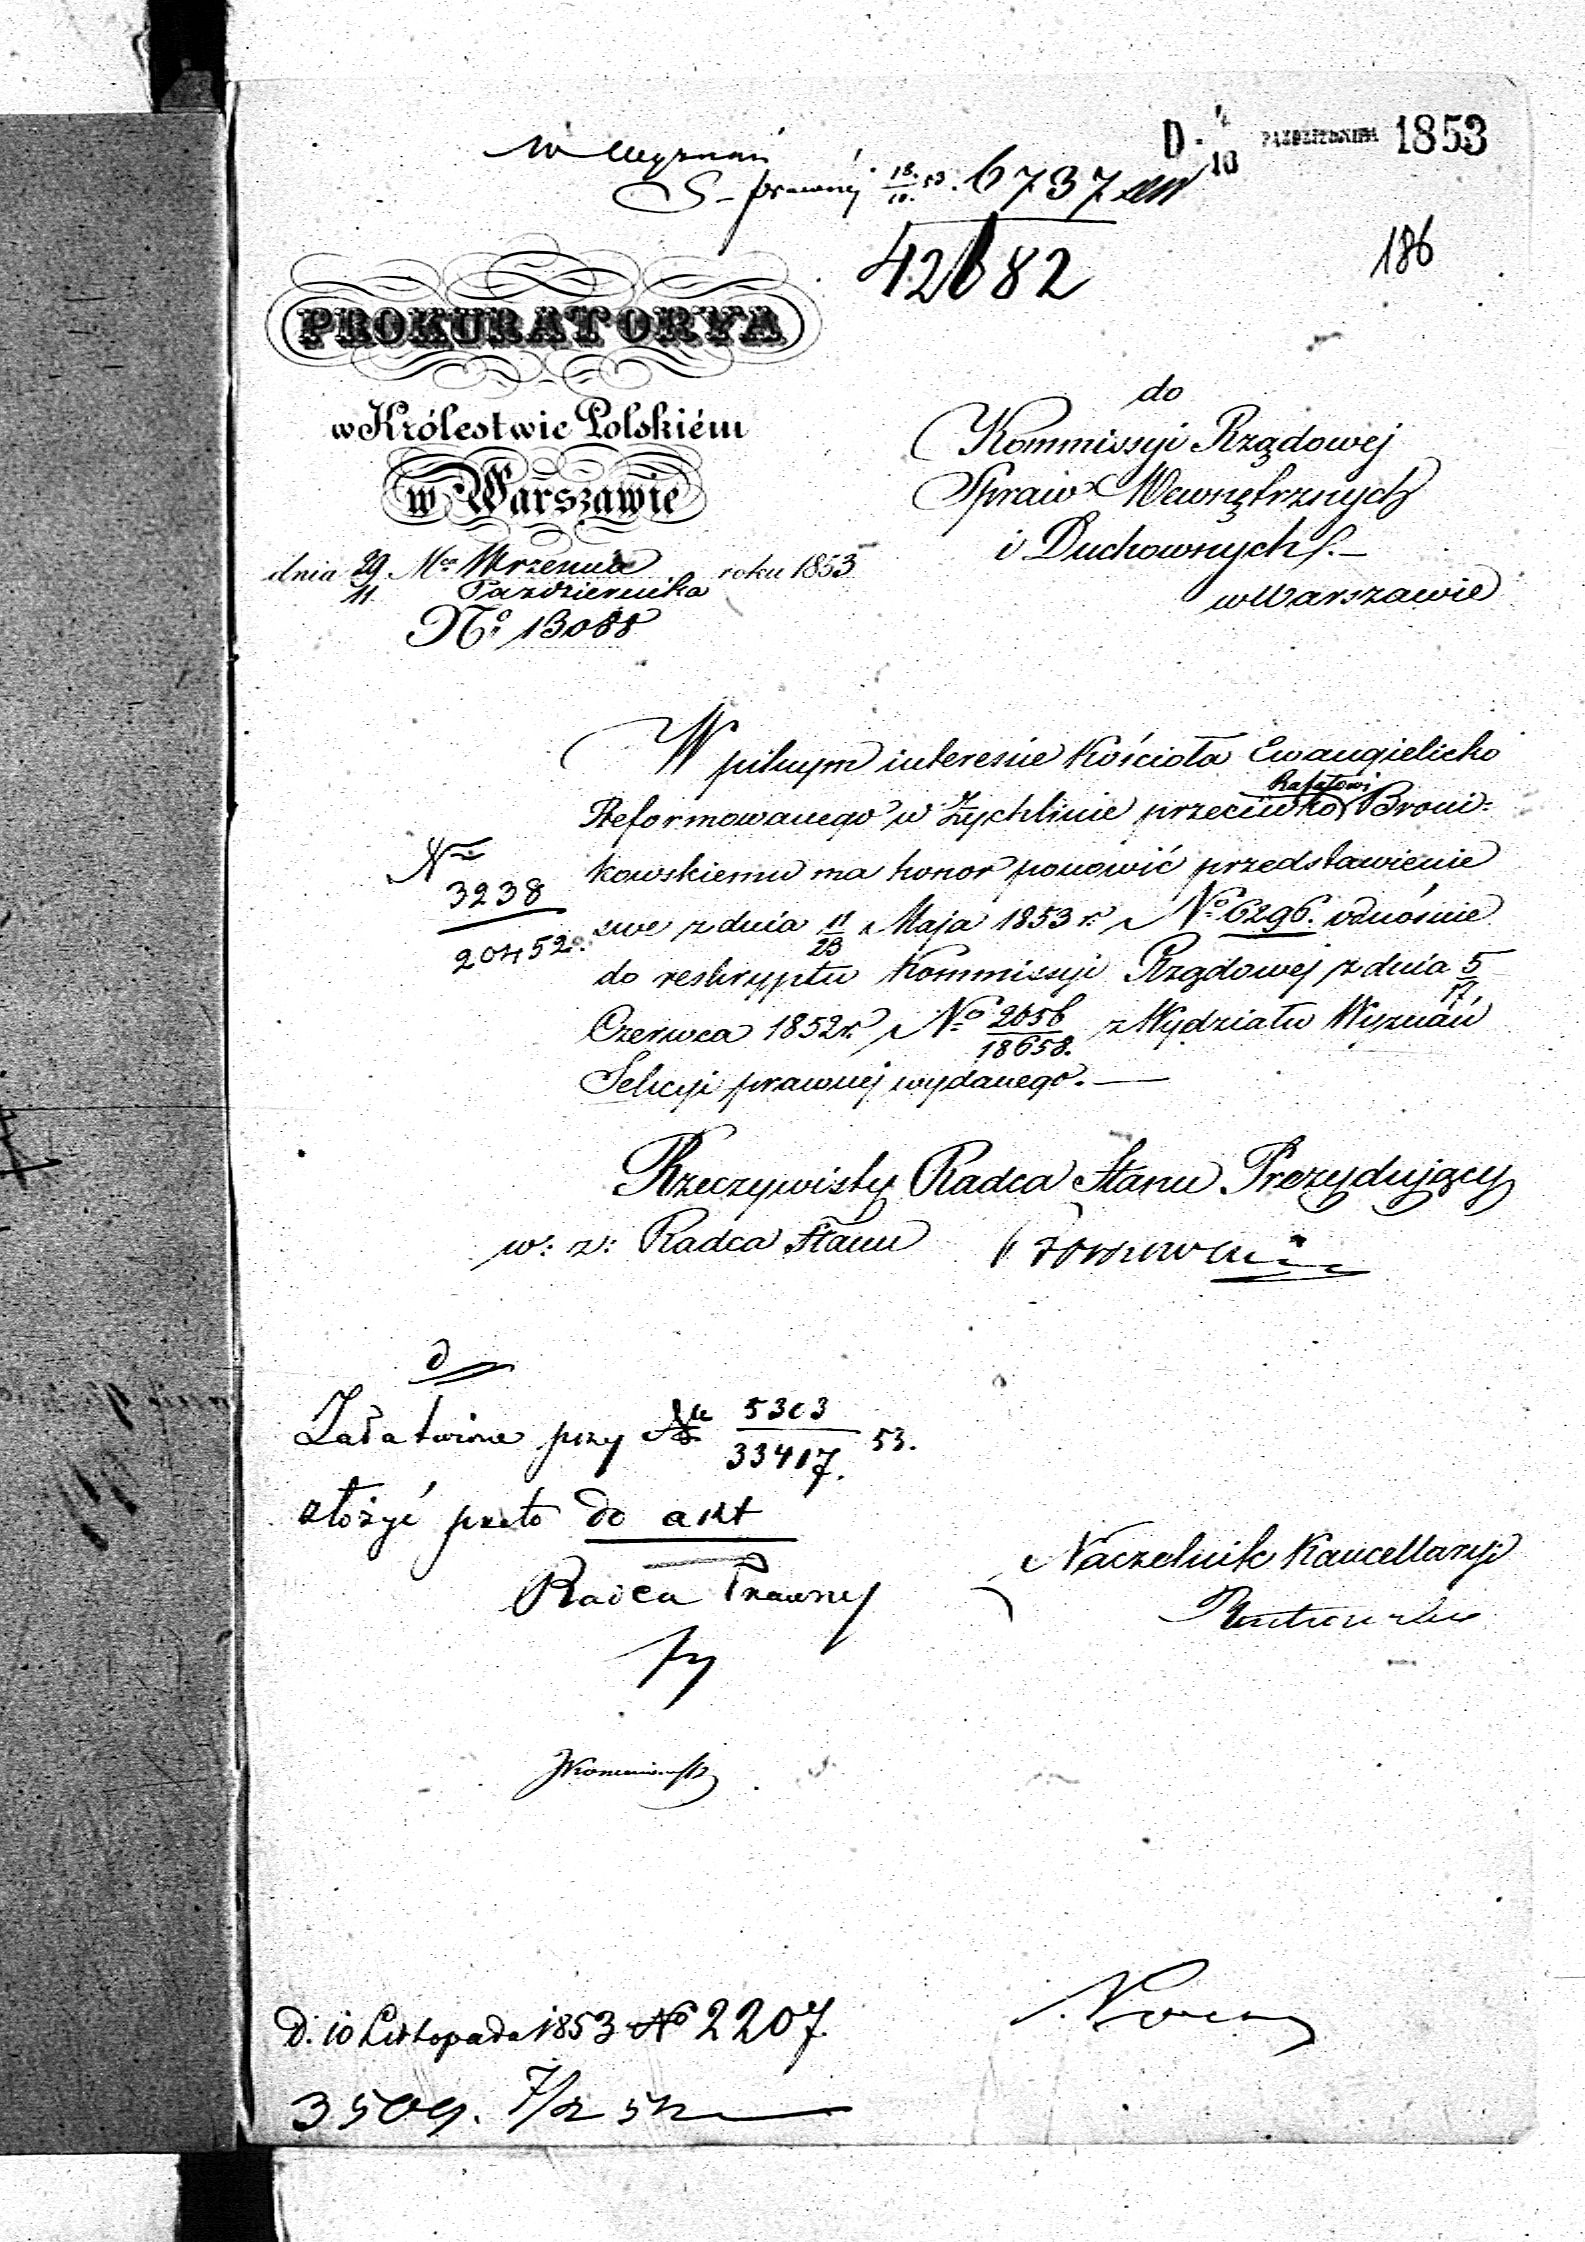 W Wyznań
S. prawnéj 18/10 53. 6737
42682
D. 4/16 PAŹDZIERNIKA 1853
186
PROKURATORYA
w Królestwie Polskiém
w Warszawie
dnia 29/11 Mca Września/Października roku 1853
No 13088
do
Kommissyi Rządowej
Spraw Wewnętrznych
i Duchownych
w Warszawie
W pilnym interesie Kościoła Ewangielicko
Reformowanego w Żychlinie przeciwko Rafałowi Broni-
kowskiemu ma honor ponowić przedstawienie
swe z dnia 11/23 Maja 1853 r. No 6296. odnośnie
do reskryptu Kommissyi Rządowej z dnia 5/17
Czerwca 1852 r. No 2656/18658. z Wydziału Wyznań
Sekcyi prawnej wydanego.
No 3238/20452.
Rzeczywisty Radca Stanu Prezydujący
w: z: Radca Stanu
Załatwione przy No 5303/33417. 53.
złożyć przeto do akt
Radca Prawny
Naczelnik Kancellaryi
D. 10 Listopada 1853 No 2207
3509.